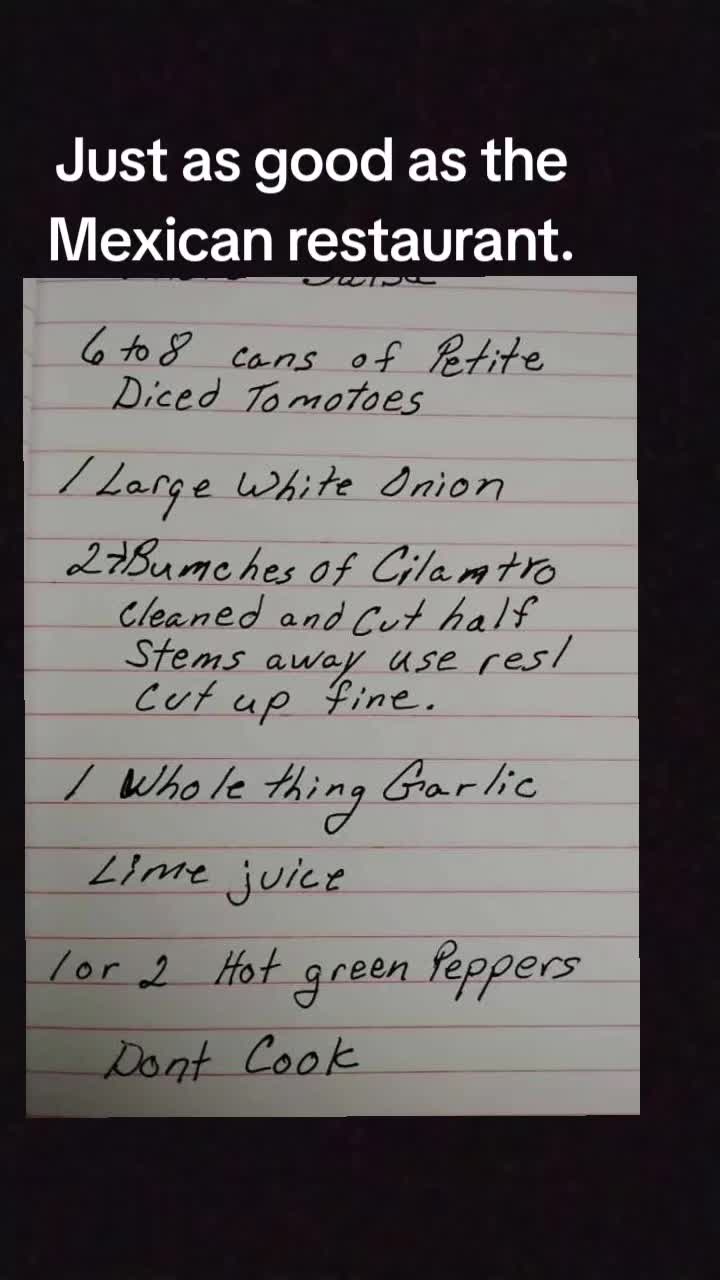 Just as good as the
Mexican restaurant.
Salsa
6 to 8 cans of Petite
Diced Tomotoes
1 Large White Onion
2 Bumches of Cilamtro
cleaned and Cut half
Stems away use rest
Cut up fine.
1 Whole thing Garlic
Lime juice
1 or 2 Hot green Peppers
Dont Cook